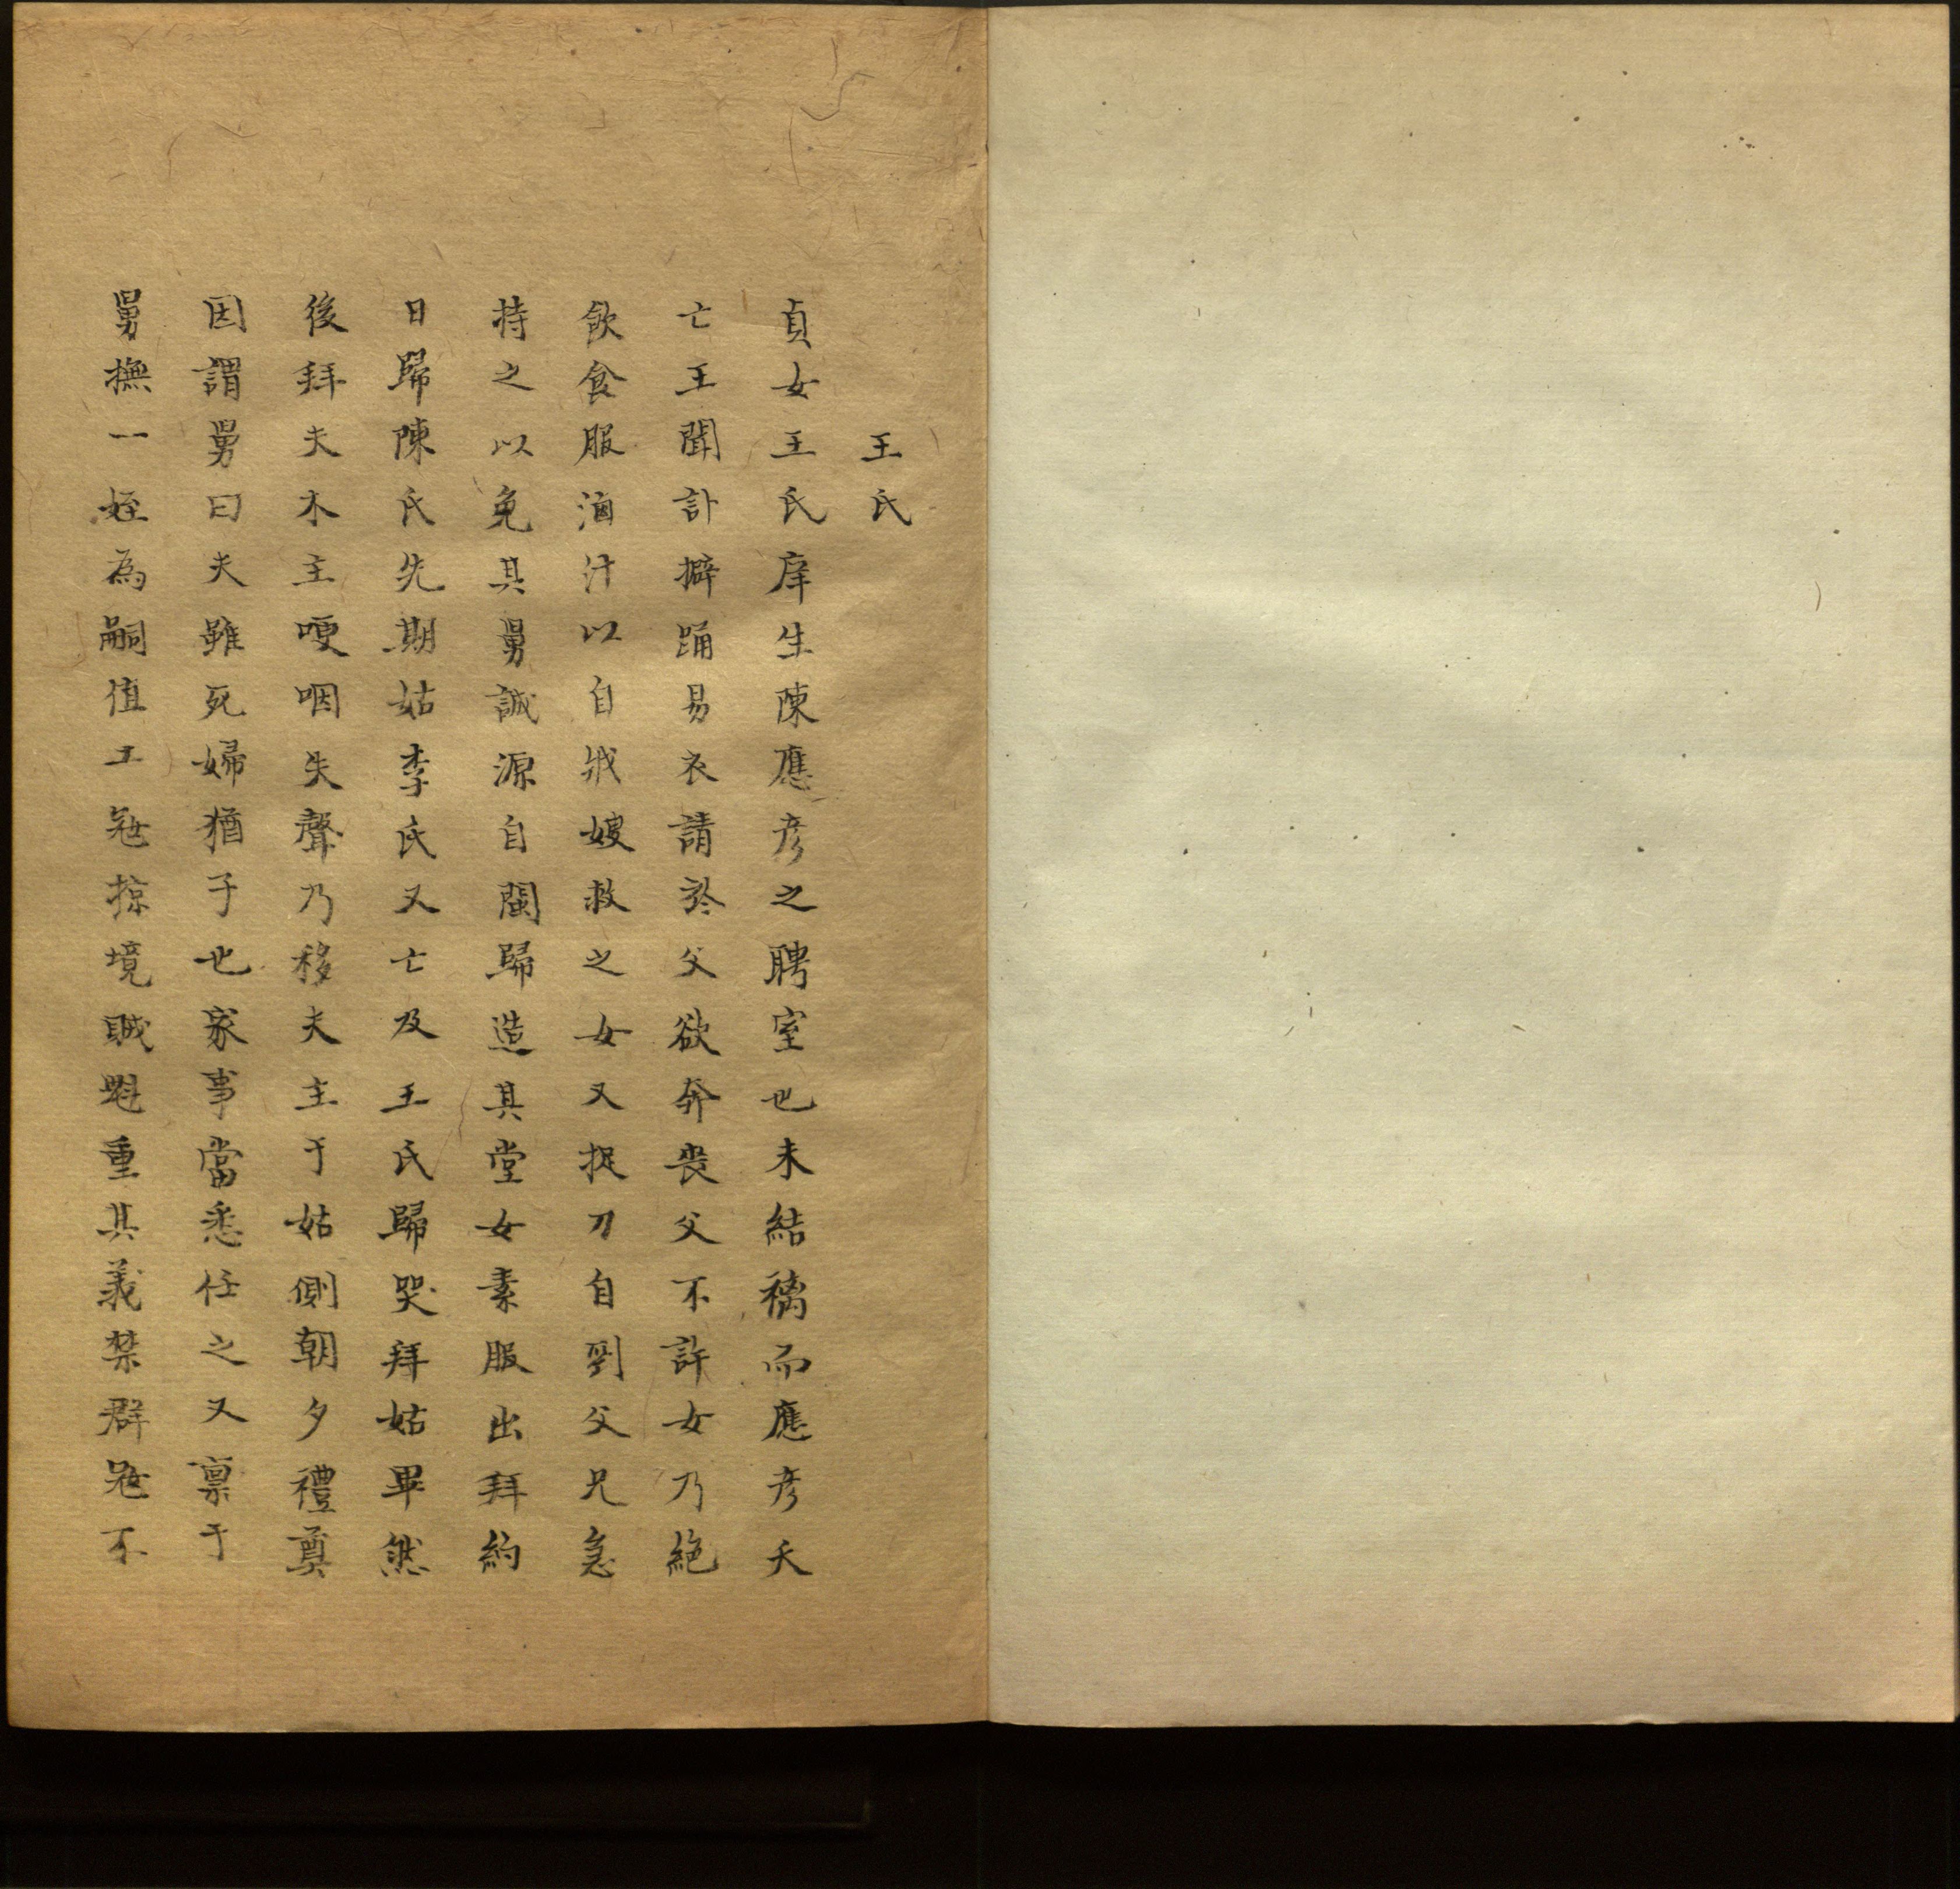 王氏
貞女王氏庠生陳應彦之聘室也未結褵而應彦夭
亡王聞訃擗踊易衣請於父欲奔喪父不許女乃絶
飲食服滷汁以自戕嫂救之女又捉刀自剄父兄急
持之以免其舅誠源自閩歸造其堂女素服出拜約
日歸陳氏先期姑李氏又亡及王氏歸哭拜姑畢然
後拜夫木主哽咽失聲乃移夫主于姑側朝夕禮奠
因謂舅曰夫雖死婦猶子也家事當悉任之又禀于
舅撫一姪為嗣值土冦掠境賊魁重其義禁群冦不